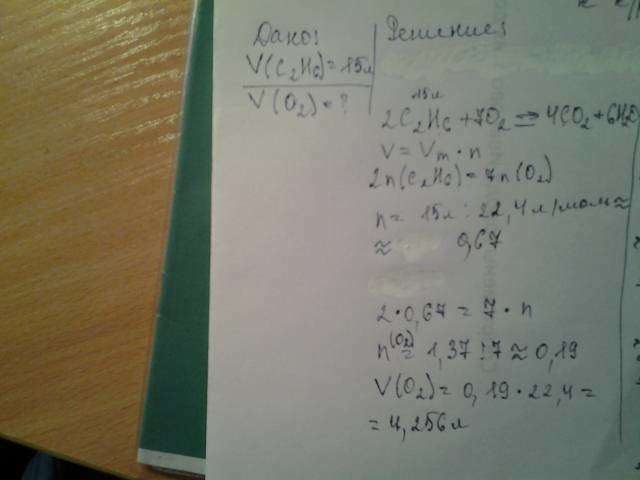 Дано:
V(C₂H₆) = 15л
V(O₂) = ?
Решение:
15л
2C₂H₆ + 7O₂ = 4CO₂ + 6H₂O
V = Vm · n
2n(C₂H₆) = 7n(O₂)
n = 15л : 22,4 л/моль ≈
≈ 0,67
2 · 0,67 = 7 · n
n(O₂) = 1,37 : 7 ≈ 0,19
V(O₂) = 0,19 · 22,4 =
= 4,256л